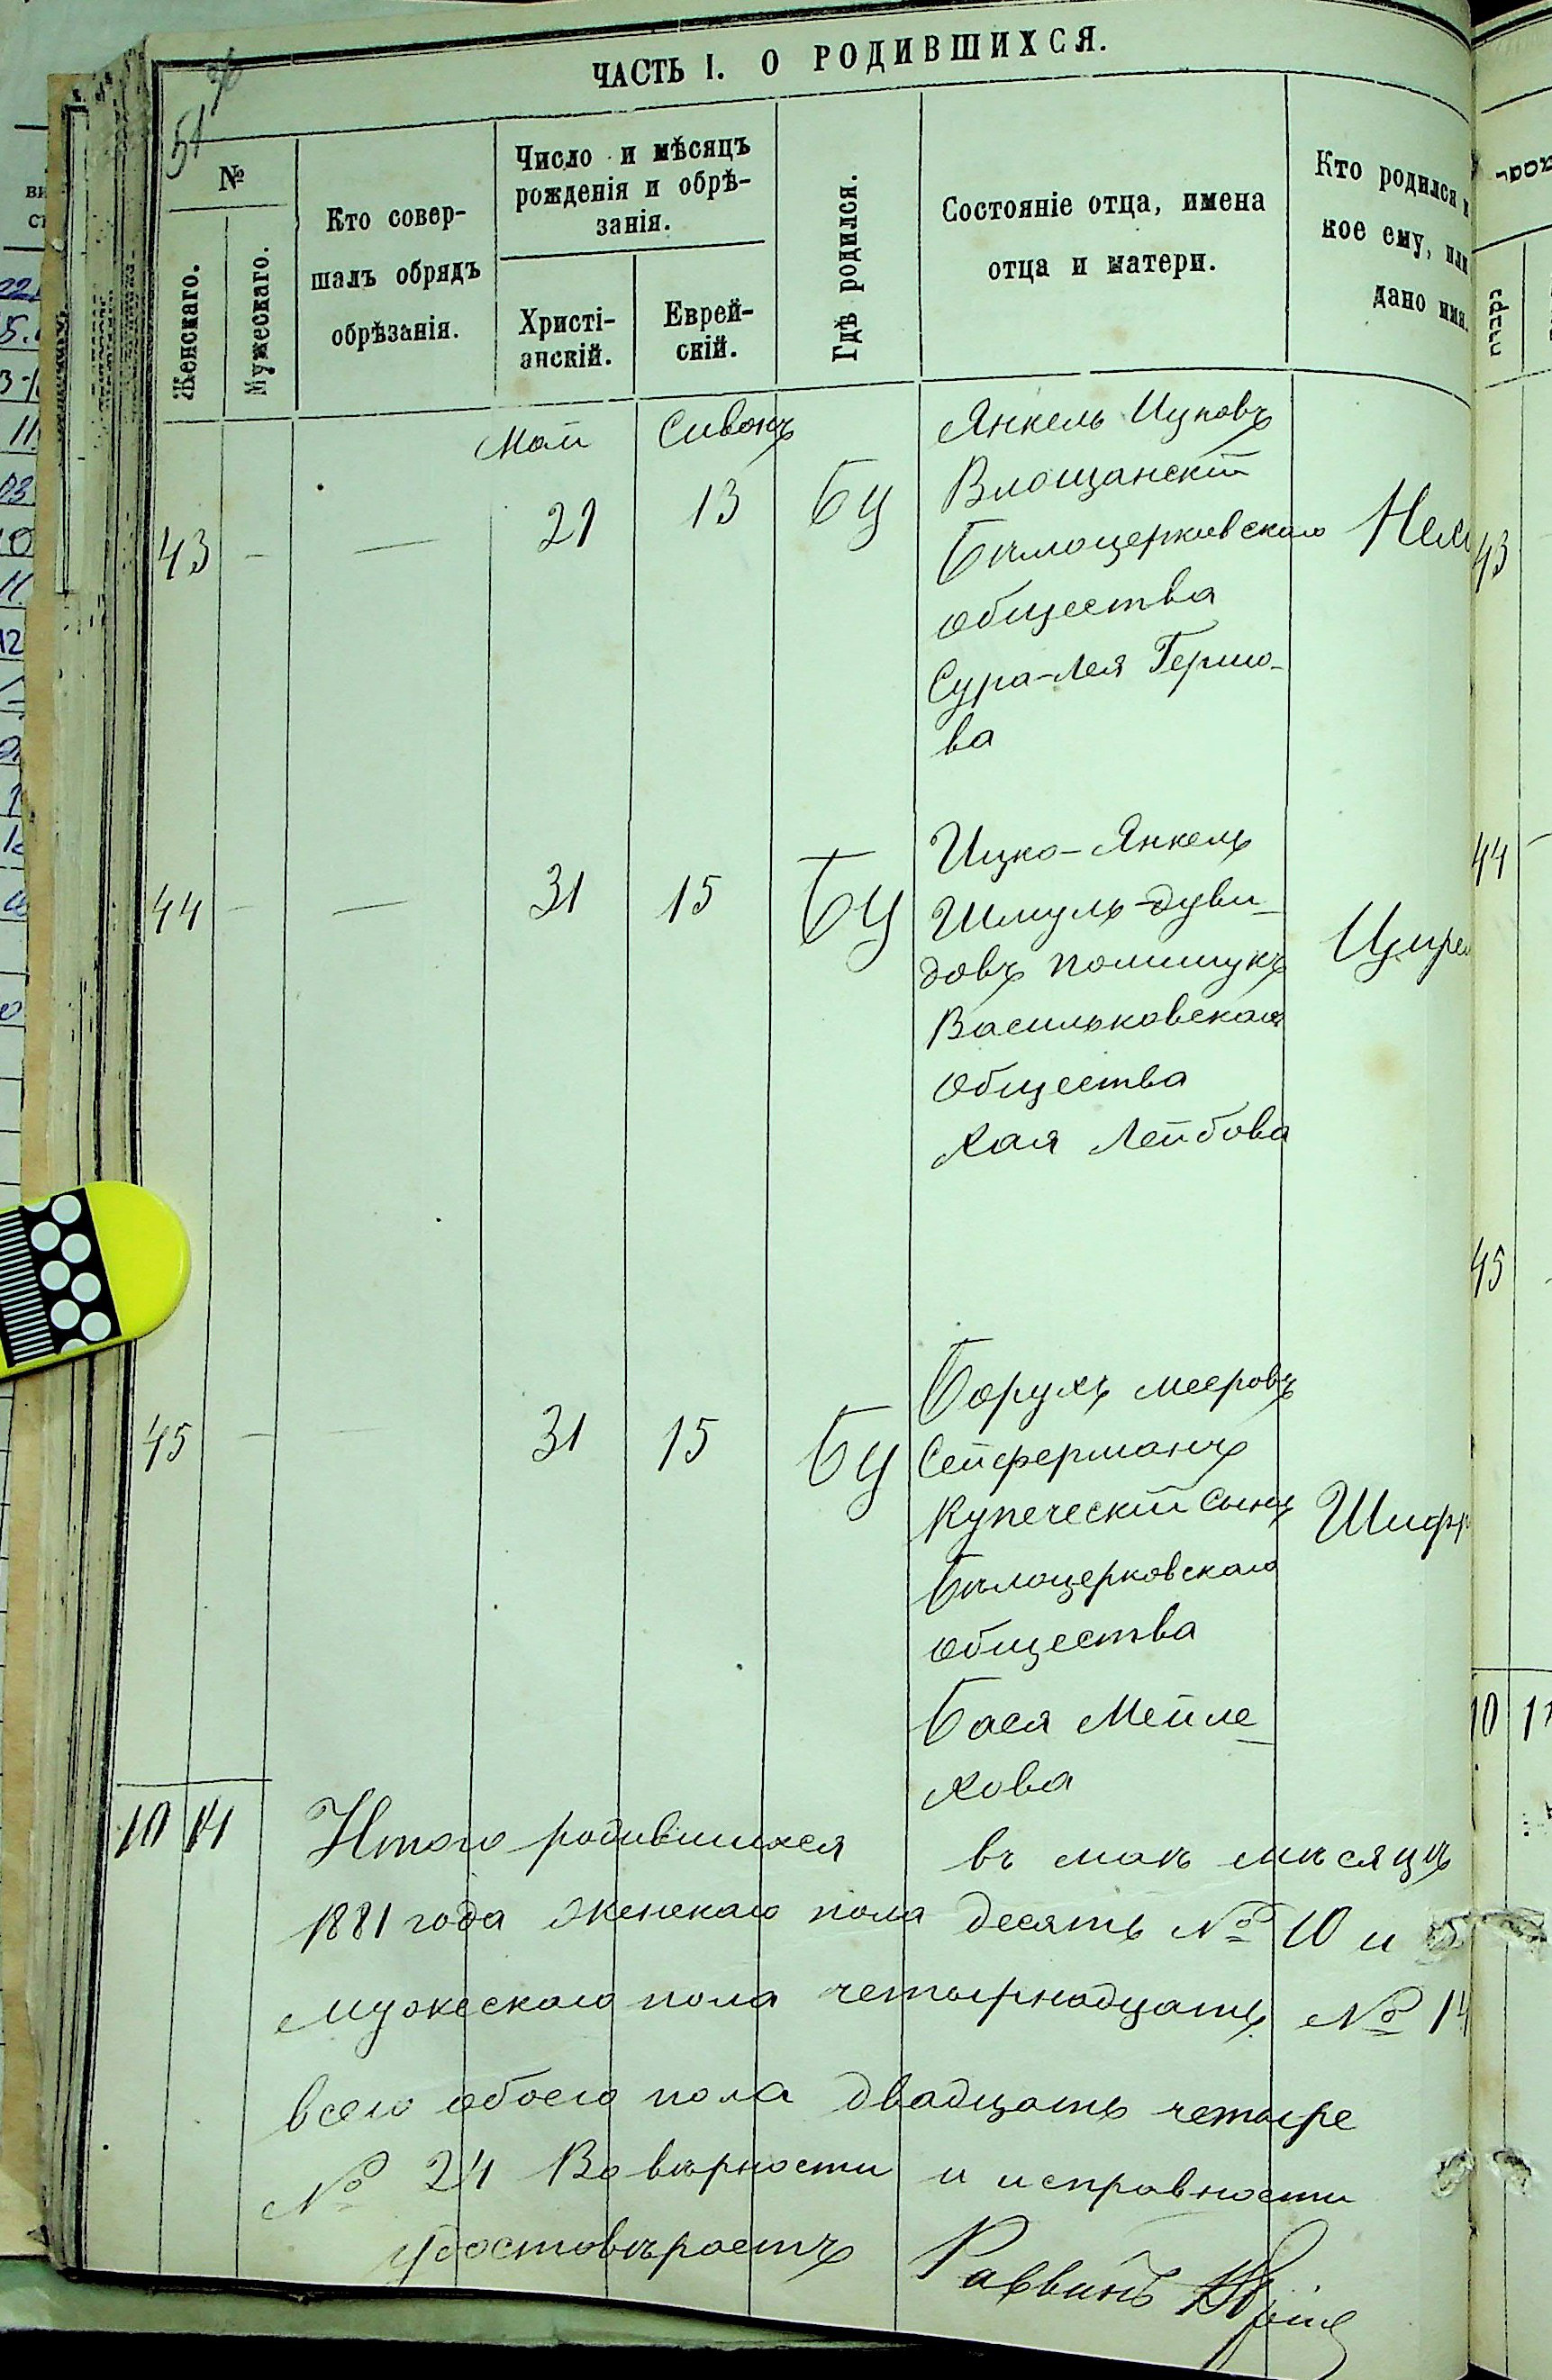 51
ЧАСТЬ I. О РОДИВШИХСЯ.
№
Женскаго.
Мужескаго.
Кто совер-
шалъ обрядъ
обрѣзанія.
Число и мѣсяцъ
рожденія и обрѣ-
занія.
Христі-
анскій.
Еврей-
скій.
Гдѣ родился.
Состояніе отца, имена
отца и матери.
Кто родился и
кое ему, или
дано имя.
Май Сиванъ
43 - — 21 13 БЦ
Янкель Ицковъ
Влощанскій
Бѣлоцерковскаго
общества
Сура-Лея Гершо-
ва
44 - — 31 15 БЦ
Ицко-Янкель
Шмуль-Дуви-
довъ Полищукъ
Васильковскаго
общества
Хая Лейбова
45 - — 31 15 БЦ
Борухъ Мееровъ
Сейферманъ
Купеческій сынъ
Шифр
Бѣлоцерковскаго
общества
Бася Мейле-
хова
10 14 Итого родившихся въ маѣ мѣсяцѣ
1881 года женскаго пола десять № 10 и
мужескаго пола четырнадцать № 14
всего обоего пола двадцать четыре
№ 24 Во вѣрности и исправности
удостовѣряетъ Раввинъ
43
44
45
10